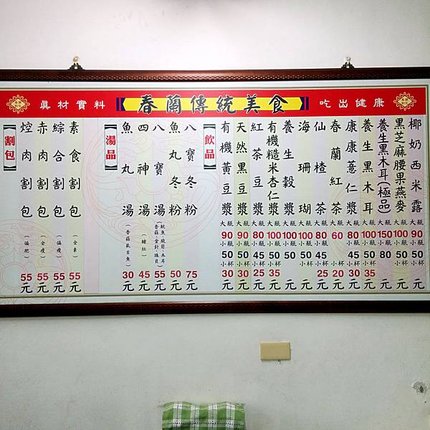 真材實料 春蘭傳統美食 吃出健康
椰奶西米露 大瓶 90元 小瓶 50元
黑芝麻腰果燕麥 大瓶 100元 小瓶 50元
養生黑木耳(極品) 大瓶 150元 小瓶 80元
養生黑木耳 大瓶 100元 小瓶 50元 小杯 35元
康康薏仁漿 大瓶 80元 小瓶 45元 小杯 30元
春蘭紅茶 大瓶 60元 小杯 20元
仙楂茶 大瓶 80元 小杯 25元
海珊瑚 大瓶 100元 小瓶 50元
養生穀漿 大瓶 100元 小瓶 50元
有機糙米杏仁漿 大瓶 100元 小瓶 50元 小杯 35元
紅茶豆漿 大瓶 80元 小瓶 45元 小杯 25元
天然黑豆漿 大瓶 90元 小瓶 50元 小杯 30元
有機黃豆漿 大瓶 90元 小瓶 50元 小杯 25元
【飲品】
八寶冬粉 75元
魚丸冬粉 50元
八寶湯 55元
四神湯 45元
魚丸湯 30元
【湯品】
素食割包 (全素) 55元
綜合割包 55元
赤肉割包 55元
焢肉割包 55元
【割包】